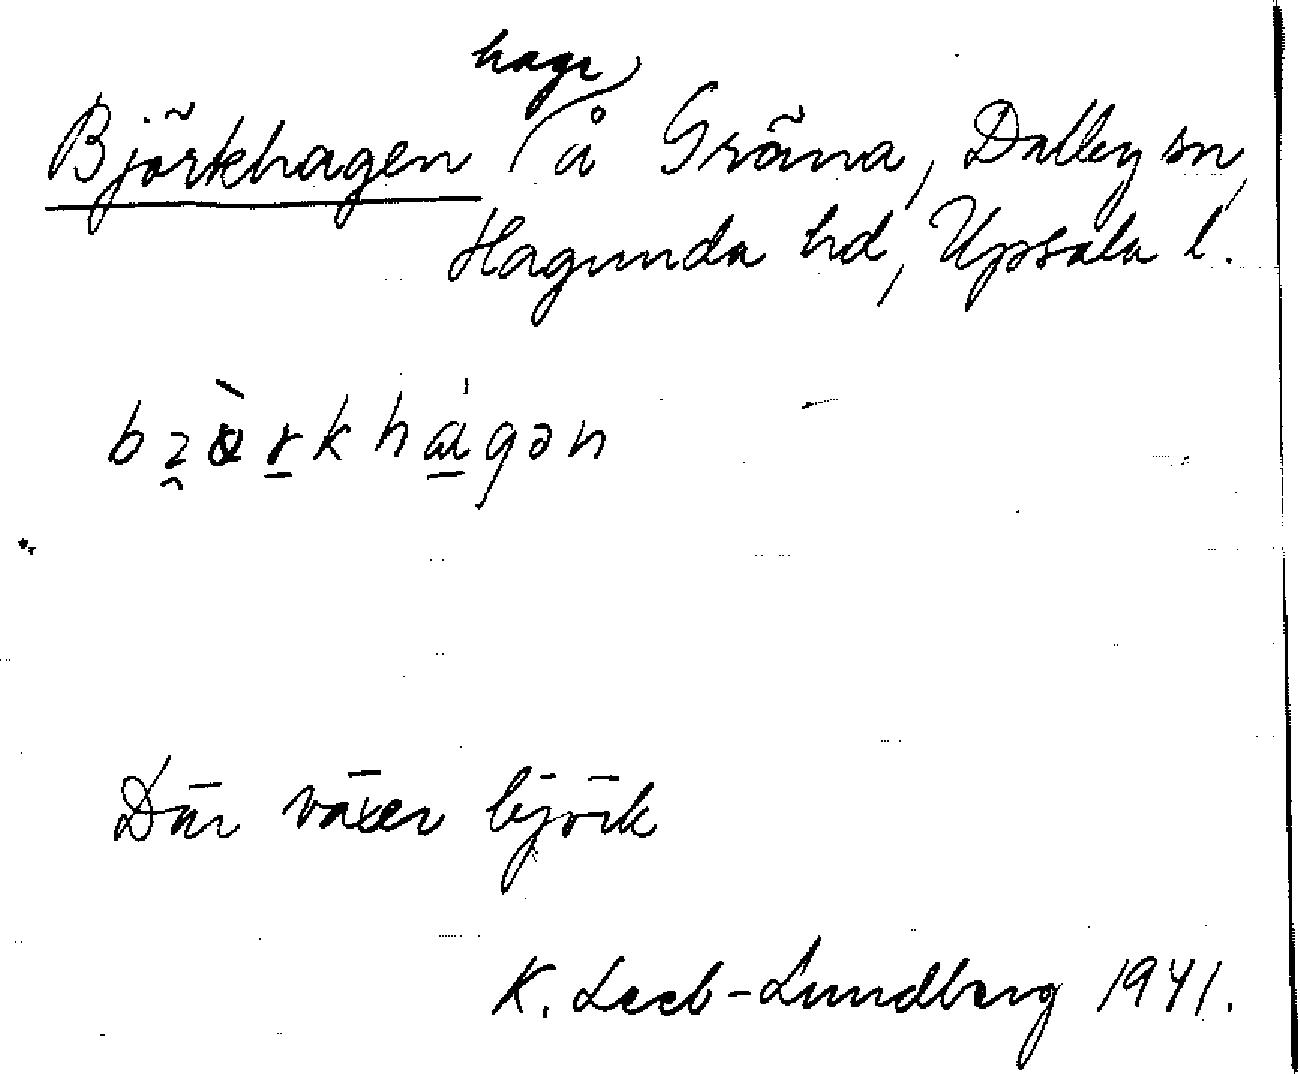 hage
Björkhagen å Gräna, Dalby sn,
Hagunda hd, Upsala l.
Där växer björk
K. Leeb-Lundberg 1941.